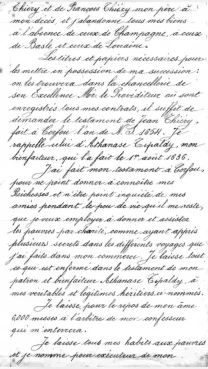 Chiery et de François Chiery mon père à
mon décès, et j'abandonne tous mes biens
à l'absence de ceux de Champagne, à ceux
de Basle et ceux de Loraine.
Les titres et papiers nécessaires pour
se mettre en possession de ma succession :
on les trouvera dans la chancellerie de
son Excellence Mor le Provéditeur où sont
enregistrés tous mes contrats, il suffit de
demander le testament de Jean Thiery,
fait à Corfou l'an de N. S. 1654. Je
rappelle celui d'Athanase Tipaldy, mon
bienfaiteur, qui l'a fait le 1er août 1636.
J'ai fait mon testament à Corfou,
pour ne point donner à connoître mes
Richesses et n'être point inquiété de mes
amies pendant le peu de vie qui me reste,
que je veux employer à donner et assister
les pauvres par charité, comme ayant appris
plusieurs secrets dans les différents voyages que
j'ai faits dans mon commerce. Je laisse tout
ce que est enfermé dans le testament de mon
patron et bienfaiteur Athanase Tipaldy, à
mes véritables et légitimes héritiers ci-nommés.
Je laisse, pour le repos de mon âme
6000 messes à l'arbitre de mon confesseur
qui m'enterrera.
Je laisse tous mes habits aux pauvres
et je nomme pour exécuteur de mon